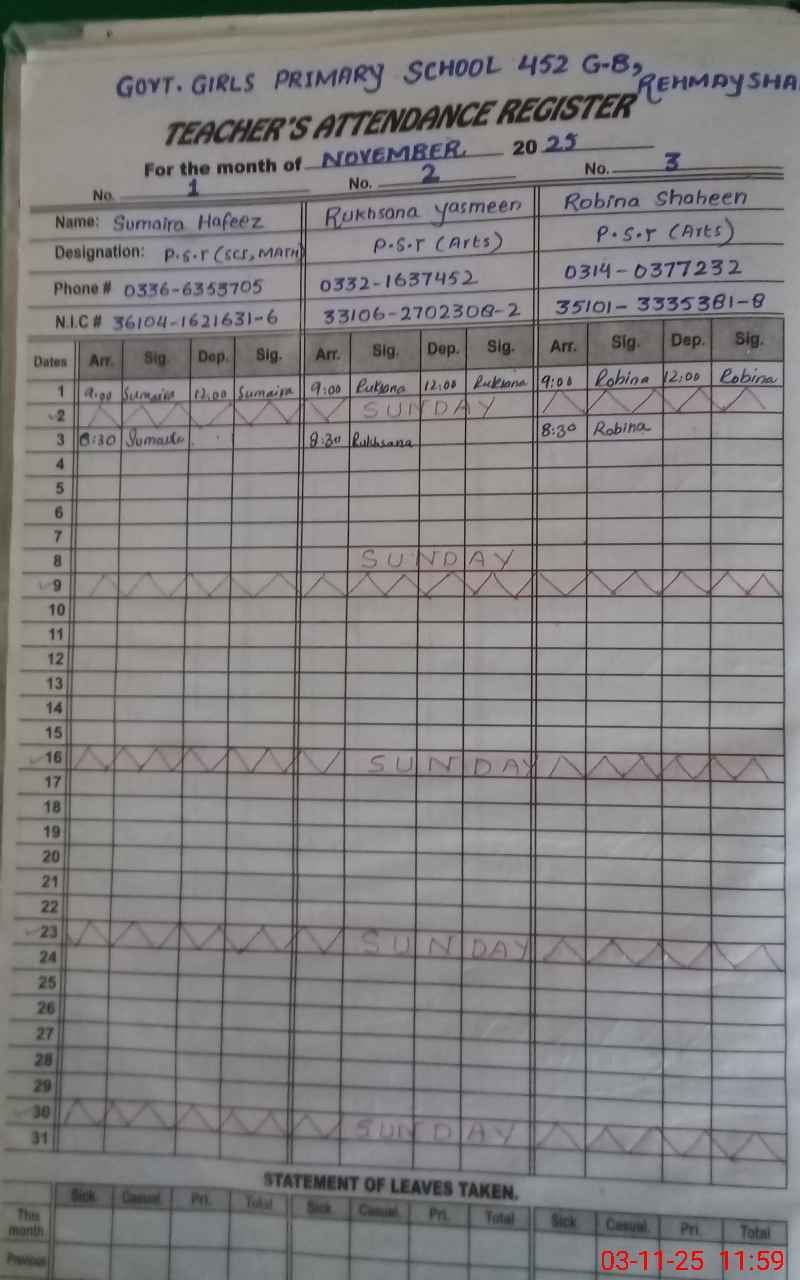 GOVT. GIRLS PRIMARY SCHOOL 452 G-B, REHMAYSHA
TEACHER'S ATTENDANCE REGISTER
For the month of NOVEMBER 2025
No. 1 No. 2 No. 3
Name: Sumaira Hafeez Rukhsana Yasmeen Robina Shaheen
Designation: P.S.T (SCS, MATH) P.S.T (Arts) P.S.T (Arts)
Phone # 0336-6353705 0332-1637452 0314-0377232
N.I.C # 36104-1621631-6 33106-2702308-2 35101-3335381-8
Dates Arr. Sig. Dep. Sig. Arr. Sig. Dep. Sig. Arr. Sig. Dep. Sig.
1 9:00 Sumaira 12:00 Sumaira 9:00 Ruksana 12:00 Ruksana 9:00 Robina 12:00 Robina
2 SUNDAY
3 8:30 Sumaira 8:30 Rukhsana 8:30 Robina
4
5
6
7
8 SUNDAY
9
10
11
12
13
14
15
16 SUNDAY
17
18
19
20
21
22
23 SUNDAY
24
25
26
27
28
29
30 SUNDAY
31
STATEMENT OF LEAVES TAKEN.
Sick Casual. Pri. Total Sick Casual. Pri. Total Sick Casual. Pri. Total
This month
Previous
03-11-25 11:59